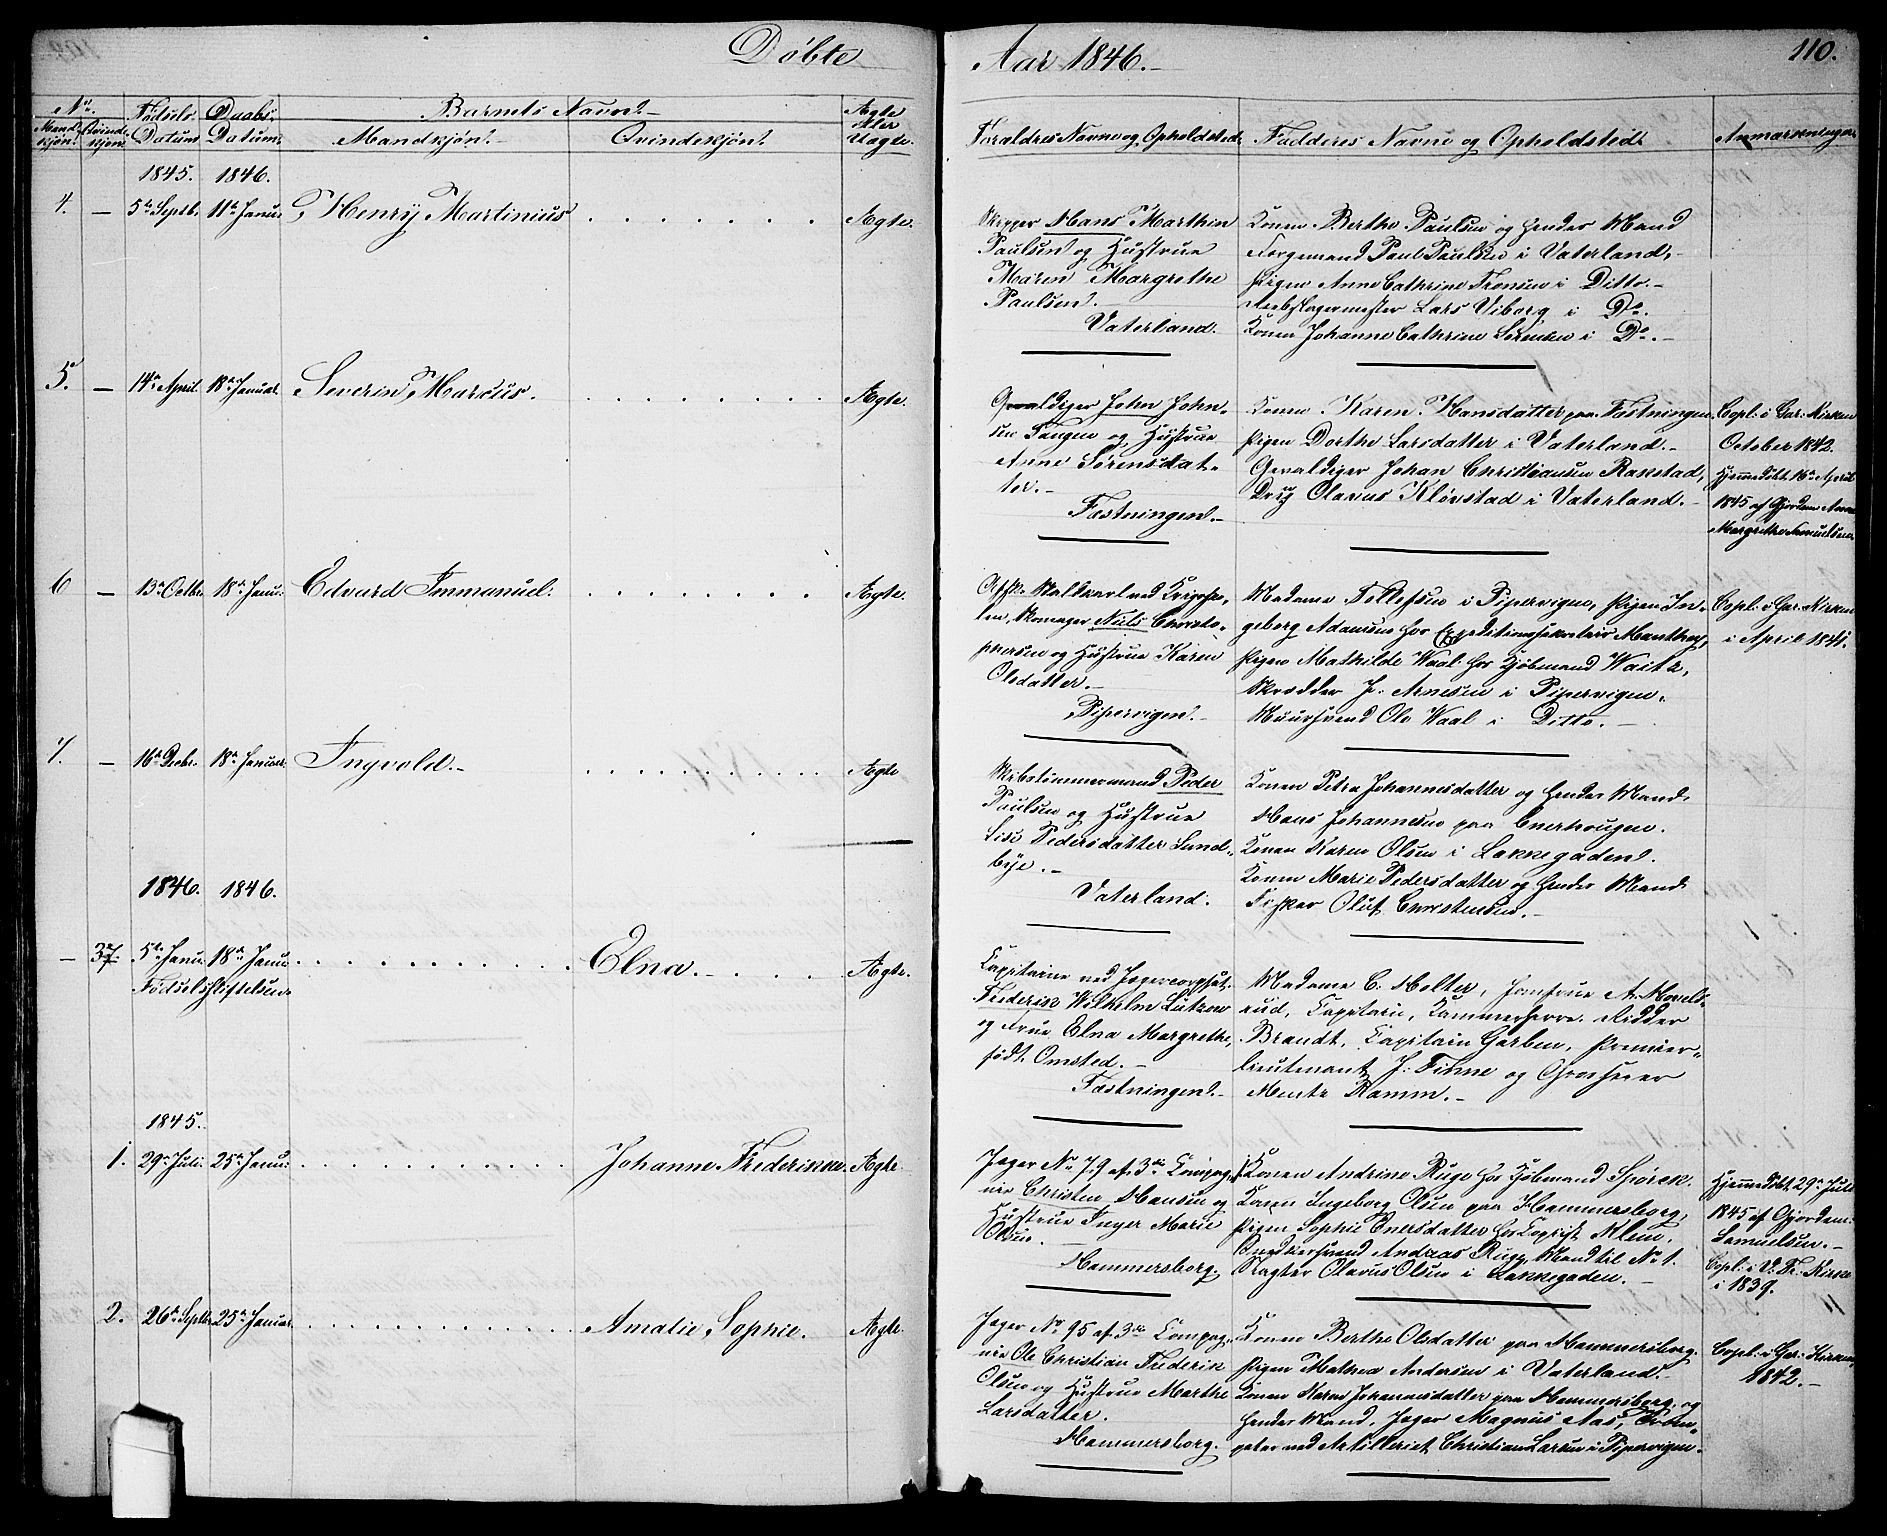 Døbte Aar 1846.-
110.
No. Fødsels Daabs Barnets Navn.- Ægte
Mandkjøn. Qvindekjøn. Datum Datum. Mandkjøn.- Qvindekjøn. eller Uægte.
Forældres Navne og Opholdsted. Faddernes Navne og Opholdsted. Anmærkninger
1845. 1846.
4. — 5te Septb. 11te Janu. Henry Martinius . . . . . . . Ægte.
Skipper Hans Marthin
Paulsen og Hustrue
Maren Margrethe
Paulsen.
Vaterland.
Konen Berthe Paulsen og hendes Mand
Borgermand Paul Paulsen i Vaterland,-
Pigen Anne Cathrine Tronsen i Ditto.-
Rebslagermester Lars Viborg i Do.
Konen Johanne Cathrine Sørensen i Do.-
5. — 14de April. 18de Januar. Severin Marcus. . . . . . . . . Ægte.
Gevaldiger John John-
sen Tangen og Hustrue
Anne Sørensdat-
ter.-
Fæstningen.-
Konen Karen Hansdatter paa Fæstningen,
Pigen Dorthe Larsdatter i Vaterland.-
Gevaldiger Johan Christiansen Rakstad,
Dreng Olavus Kløvstad i Vaterland.-
Copl. i Gar. Kirken
October 1842.
Hjemmedøbt 16de April
1845 af Gjordem. Anne
Margrethe Samuelsen
6 — 13de Octbr. 18de Janu. Edvard Immanuel. . . . . . . . Ægte.
Afsk. Staldkarl ved Krigssko-
len, Skomager Niels Christo-
phersen og Hustrue Karen
Olsdatter.-
Pipervigen.-
Madame Tollefsen i Pipervigen, Pigen In-
geborg Adamsen hos Expeditionssekretair Manthey,
Pigen Mathilde Waal hos Kjøbmand Waitz,
Skrædder J. Arnesen i Pipervigen.
Muursvend Ole Waal i Ditto.-
Copl. i Gar. Kirken
i April 1841.
7. — 16de Decbr. 18de Januar. Ingvold.- . . . . . . . . . Ægte
Skibstømmermand Peder
Paulsen og Hustrue
Lise Pedersdatter Sund-
bye.-
Vaterland.
Konen Petra Johannesdatter og hendes Mand
Hans Johannesen paa Enerhougen.
Konen Karen Olsen i Lakkegaden.
Konen Marie Pedersdatter og hendes Mand
Fisker Oluf Christensen.-
1846. 1846.
— 37. 5te Janu. 18de Janu. . . . . . . . . . . Elna.- . . . . Ægte.
Fødselsstiftelsen.
Capitaine ved Jægercorpset
Frederik Wilhelm Lützow
og Frue Elna Margrethe,
født Omsted.-
Fæstningen.-
Madame C. Molter, Jomfrue A. Mørels-
rud, Capitain, Kammerherre, Ridder
Brandt, Capitain Garben, Premier-
lieutenant J. Finne og Grosserer
Mentz Ramm.-
1845.
1. 29de Juli. 25de Janu. . . . . . . . . . . Johanne Frederikke. Ægte.
Jæger No. 79 af 3die Compag-
nie Christen Hansen og
Hustrue Inger Marie
Olsen.
Hammersborg.
Konen Andrine Ruge hos Kjøbmand Spørck.
Konen Ingeborg Olsen paa Hammersborg,
Pigen Sophie Enersdatter hos Copist Klem,
Snedkersvend Andreas Ruge, Mand til No. 1.
Slagter Olavus Olsen i Lakkegaden.-
Hjemmedøbt 29de Juli
1845 af Gjordem.
Samuelsen.-
Copl. i V. Fr. Kirke
i 1839.
2. 26de Septbr. 25de Januar. . . . . . . . . . . Amalie Sophie. Ægte.
Jæger No. 95 af 3die Compag-
nie Ole Christian Frederik
Olsen og Hustrue Marthe
Larsdatter.
Hammersborg.
Konen Berthe Olsdatter paa Hammersborg.
Pigen Mathea Andersen i Vaterland.-
Konen Karen Johannesdatter paa Hammersborg, og
hendes Mand, Jæger Magnus Aas,
ved Artilleriet Christian Larsen i Pipervigen.
Copl. i Gar. Kirken
1842.-